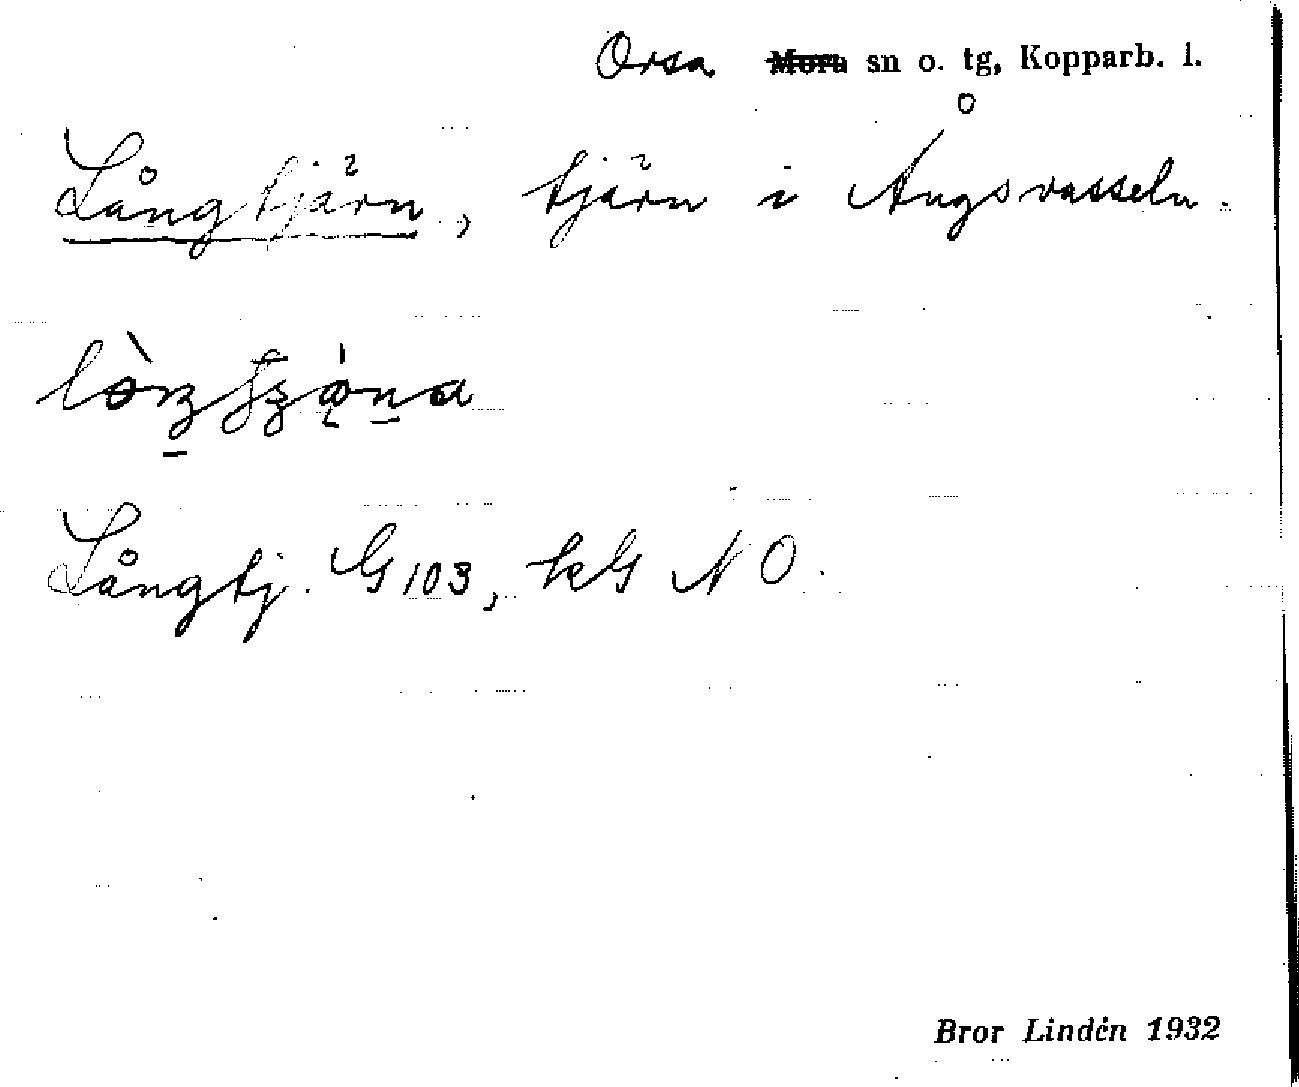 Orsa Mora sn o. tg, Kopparb. l.
Långtjärn, tjärn i Ångsvasseln.
Långtj. G 103, kG NO.
Bror Lindén 1932